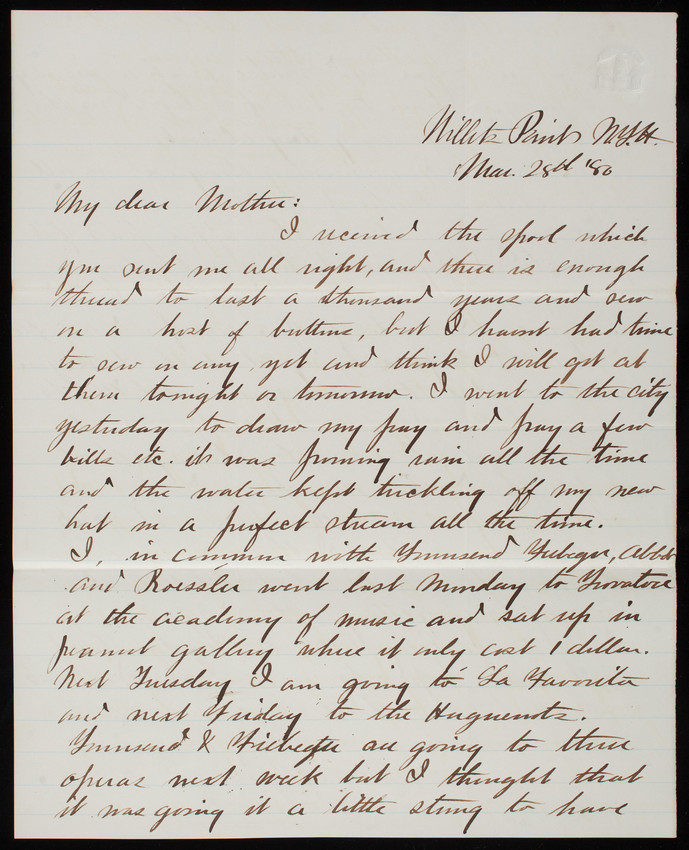 Willets Point N.Y.H.
Mar. 28th '80
My dear Mother:
I received the spool which
you sent me all right, and there is enough
thread to last a thousand years and sew
on a host of buttons, but I havent had time
to sew on any yet and think I will get at
them tonight or tomorrow. I went to the city
yesterday to draw my pay and pay a few
bills etc. it was pouring rain all the time
and the water kept trickling off my new
hat in a perfect stream all the time.
I, in common with Townsend, Abbot
and Roessler went last Monday to Trovatore
at the academy of music and sat up in
peanut gallery where it only cost 1 dollar.
Next Tuesday I am going to La Favorita
and next Friday to the Huguenots.
Townsend & are going to three
operas next week but I thought that
it was going it a little strong to have